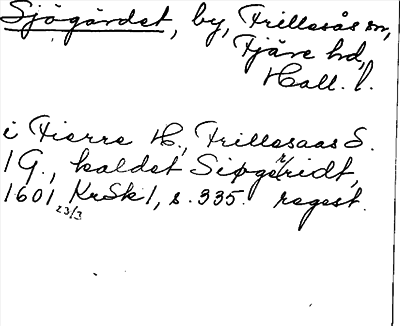 Sjögärdet, by, Frillesås sn,
Fjäre hd,
Hall. l.
i Fierre H., Frillesaas S.
1 G., kaldet Siøgerridt,
1601 23/3 KrSk 1, s. 335. regest.